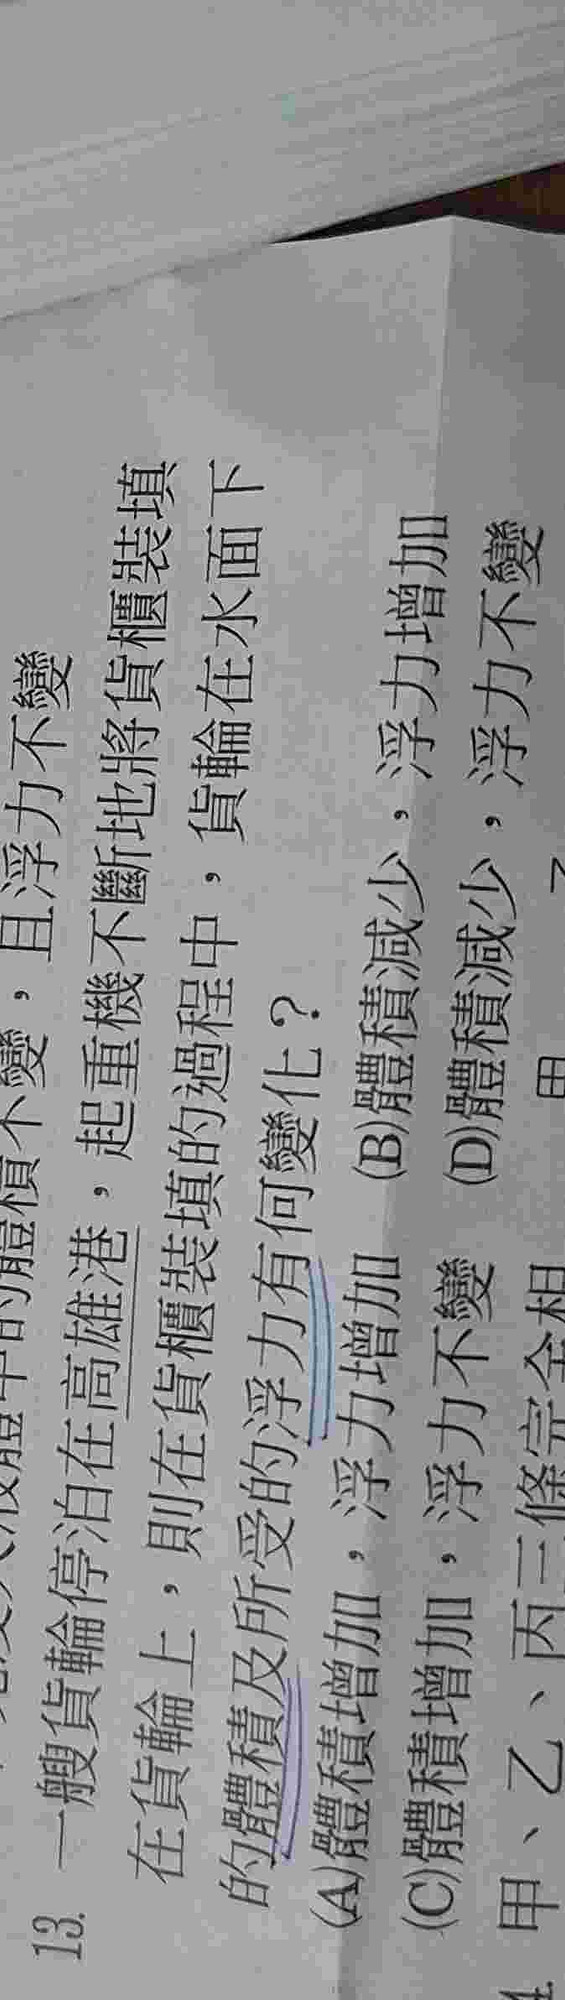 體中的體積不變，且浮力不變
13. 一艘貨輪停泊在高雄港，起重機不斷地將貨櫃裝填
在貨輪上，則在貨櫃裝填的過程中，貨輪在水面下
的體積及所受的浮力有何變化？
(A)體積增加，浮力增加 (B)體積減少，浮力增加
(C)體積增加，浮力不變 (D)體積減少，浮力不變
甲、乙、丙三條完全相 甲 乙